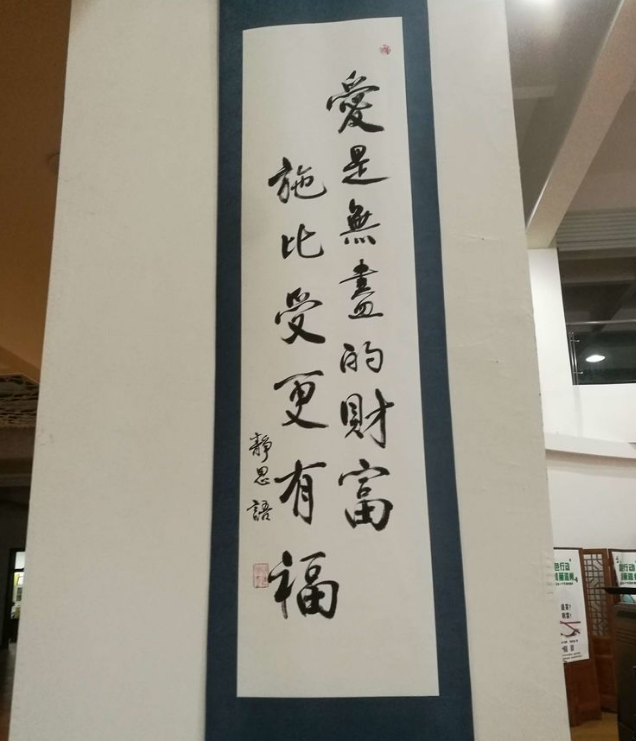 愛是無盡的財富
施比受更有福
靜思語
色行动